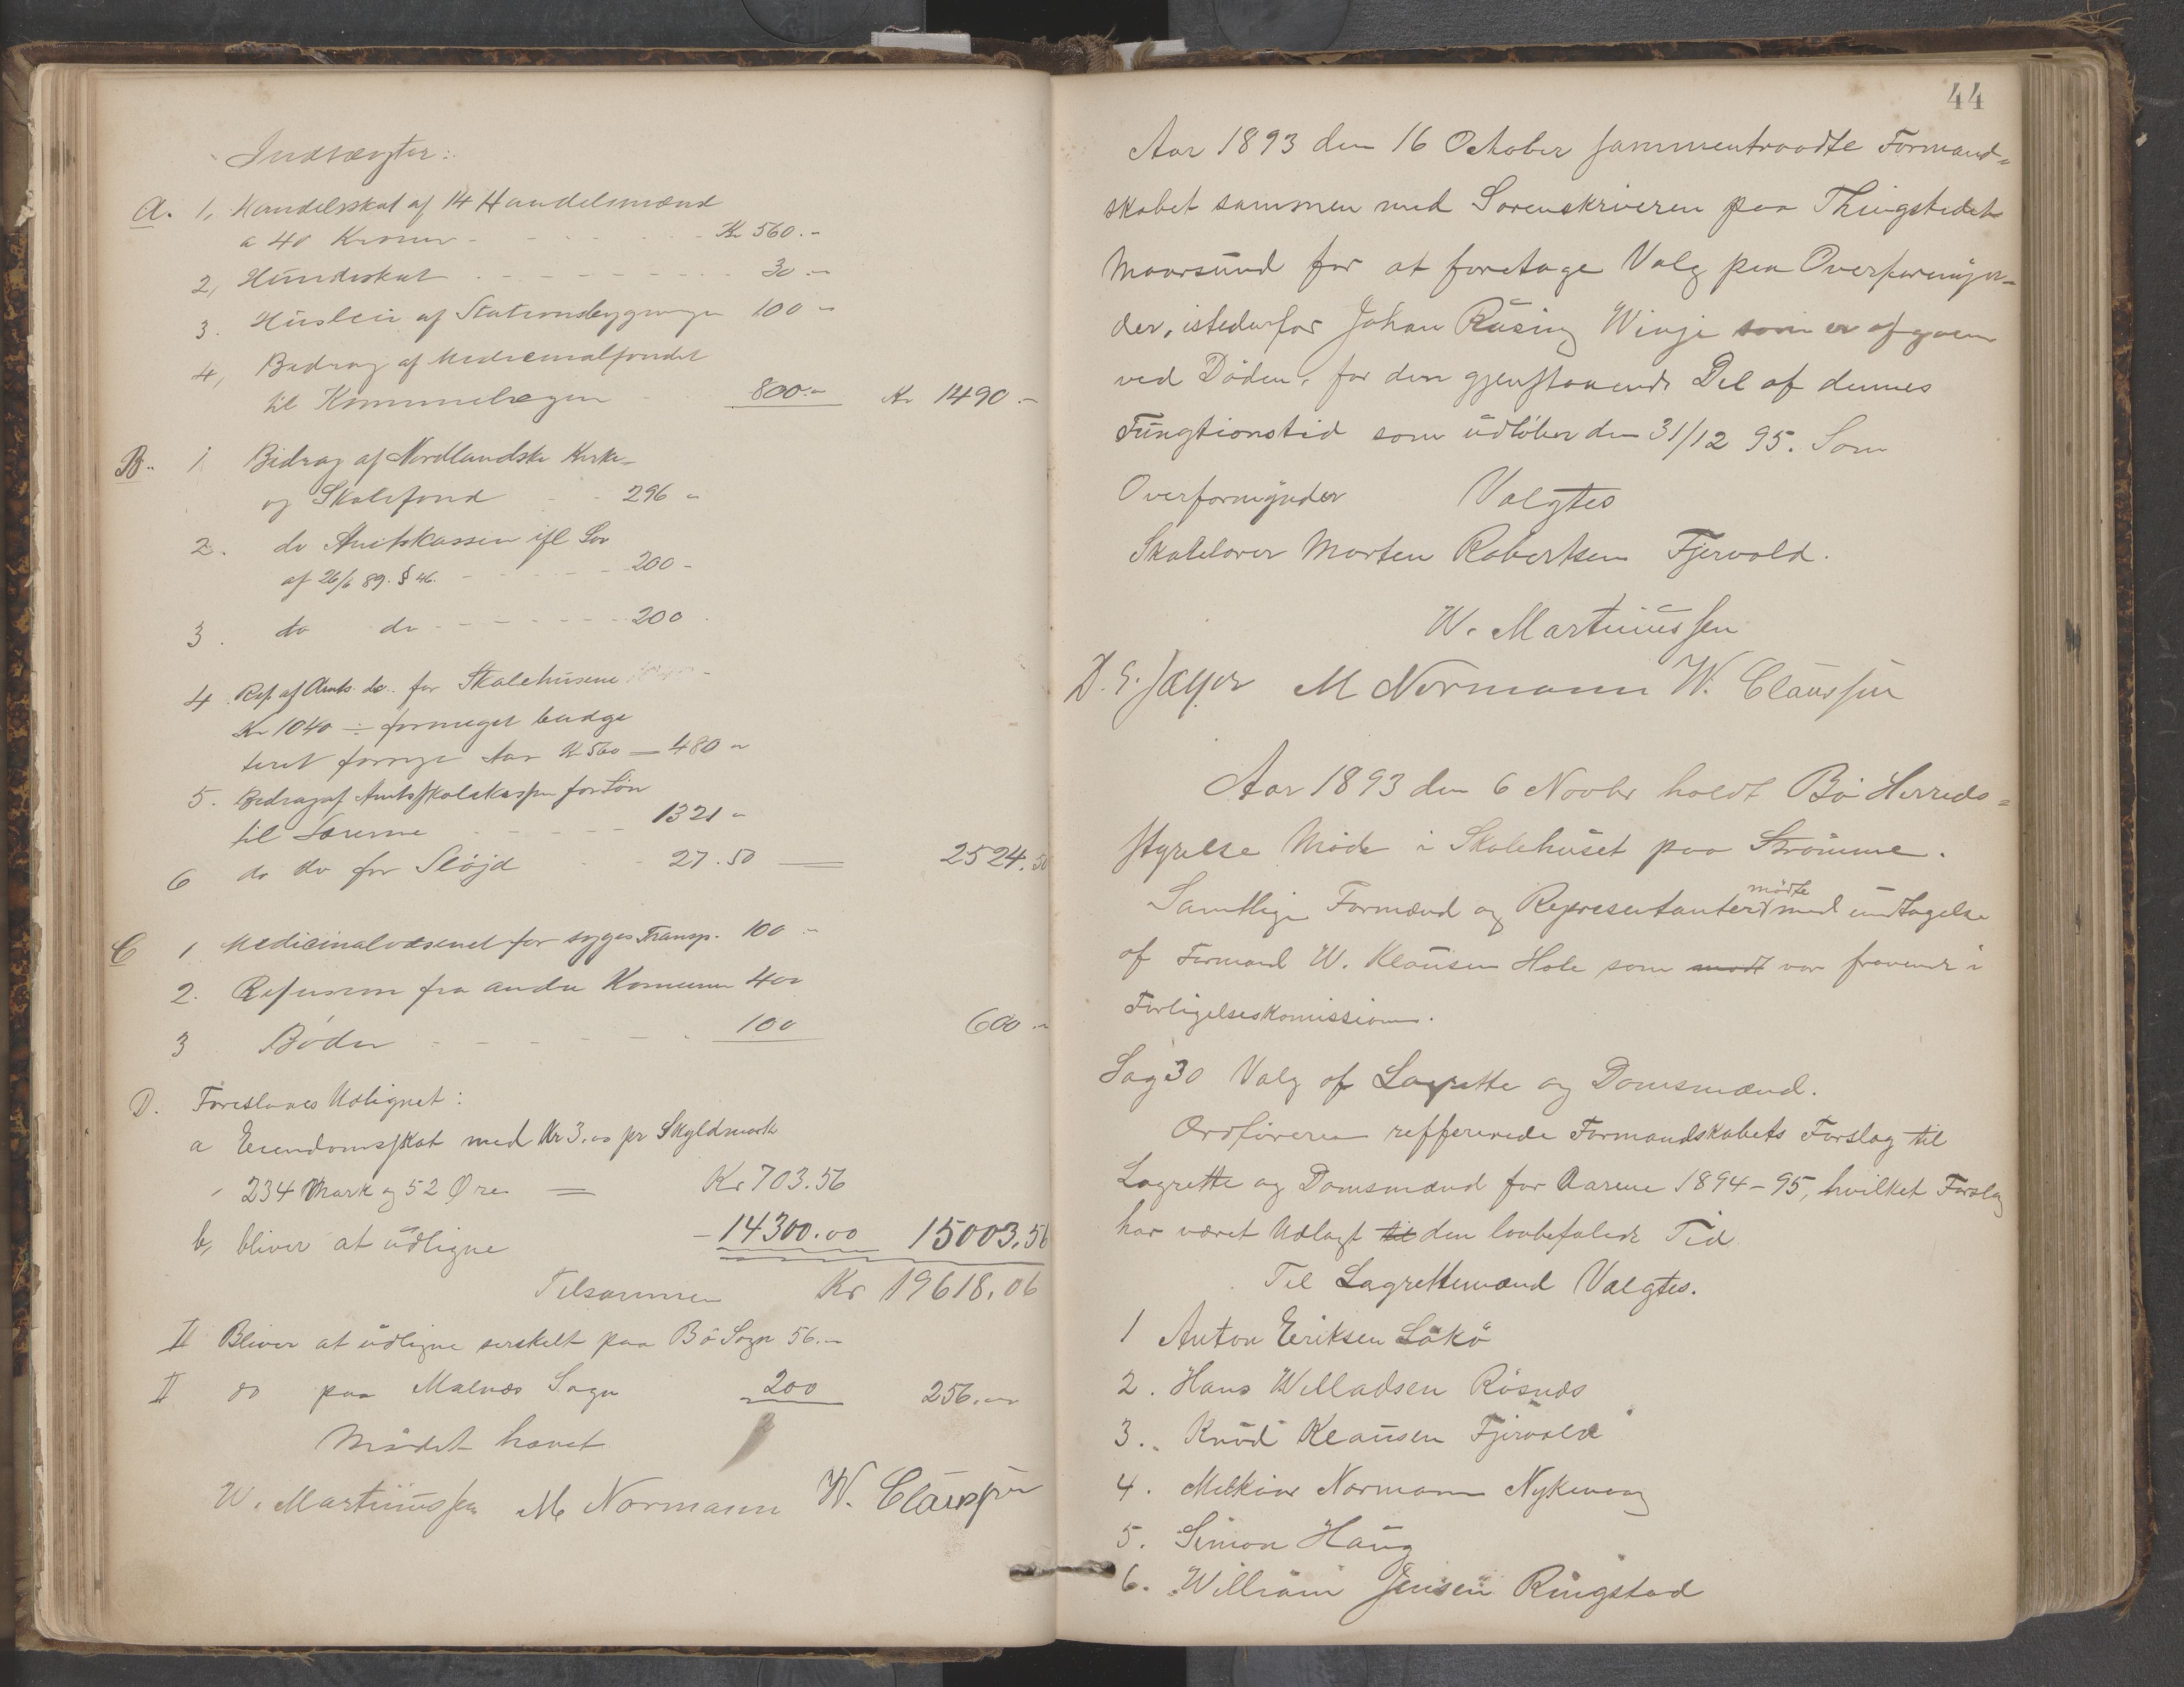 Indtægter:
A. 1, Handelsskat af 14 Handelsmænd
a 40 Kroner - - - - - Kr 560.-
2, Hundeskat - - - - - 30 -
3. Husleie af Stationsbygningen 100 -
4, Bidrag af Medicinalfondet
til Kommunelægen - 800.- Kr 1490.-
B. 1 Bidrag af Nordlandske Kirke-
og Skolefond - - 296 -
2. do Amtskassen ifl Lov
af 26/6 89. § 46. - - - - 200 -
3. do do - - - - - - 200
4. Ref. af Amts do. for Skolehusene
Kr 1040 ÷ formeget budge
teret forrige Aar Kr 560 = 480 -
5. Bidrag af Amtsskolekassen for Løn
til Lærerne - - - - 1321 -
6 do do for Sløjd - - 27.50 = 2524.50
C 1 Medicinalvæsenet for syges Transp. 100 -
2. Refusion fra andre Komuner 400
3 Bøder - - - - - - 100 600 -
D. Foreslaaes Udlignet:
a Eiendomsskat med Kr 3,00 pr Skyldmark
234 Mark og 52 Øre = Kr 703.56
b, bliver at udligne - 14300.00 15003.56
Tilsammen Kr 19618.06
II Bliver at udligne serskelt paa Bø Sogn 56.-
II do paa Malnæs Sogn 200 256.-
Mødet hævet
W. Martinussen M Normann W. Claussen
44
Aar 1893 den 16 October sammentraadte Formand=
skabet sammen med Sorenskriveren paa Thingstedet
Maarsund for at foretage Valg paa Overformyn-
der, istedenfor Johan Rasing Winje som er afgaaen
ved Døden, for den gjenstaaende Del af dennes
Fungtionstid som udløber den 31/12 95. Som
Overformynder Valgtes
Skolelærer Morten Robertsen Fjervold.
W. Martinussen
D. E. Jæger M Normann W. Claussen
Aar 1893 den 6 Novbr holdt Bø Herreds=
styrelse Møde i Skolehuset paa Strømme.
Samtlige Formænd og Representanter mødte med undtagelse
af Formand W. Klausen Hole som mødt var fraværende i
Forligelseskomissionen.
Sag 30 Valg af Lagrette og Domsmænd.
Ordføreren reffererede Formandskabets Forslag til
Lagrette og Domsmænd for Aarene 1894-95, hvilket Forslag
har været Udlagt til den lovbefalede Tid
Til Lagrettemænd Valgtes.
1 Anton Eriksen Løkø
2. Hans Willadsen Røsnæs
3. Knud Klausen Fjervold
4. Melkior Normann Nykvaag
5. Simon Haug
6. William Jensen Ringstad